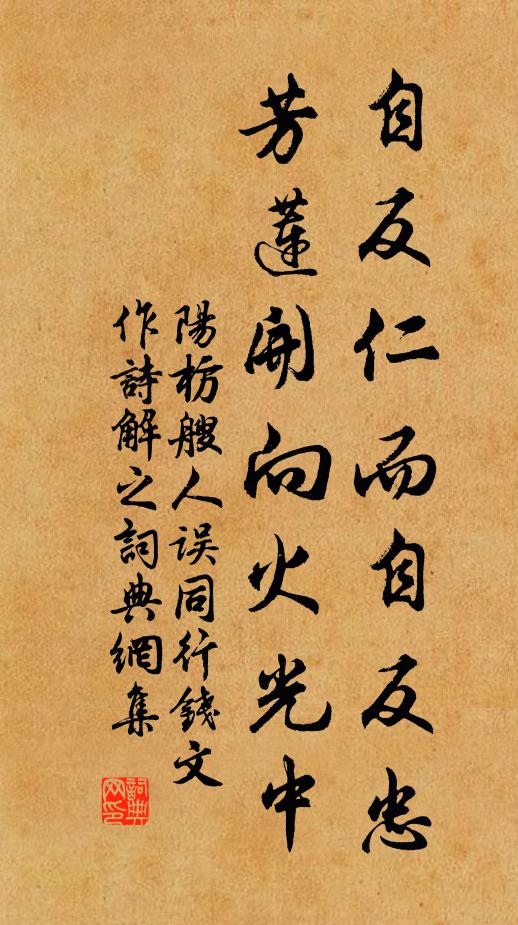 自反仁而自反忠
芳蓮開向火光中
陽枋艘人误同行錢文
作詩解之詞典網集
詞典
网印